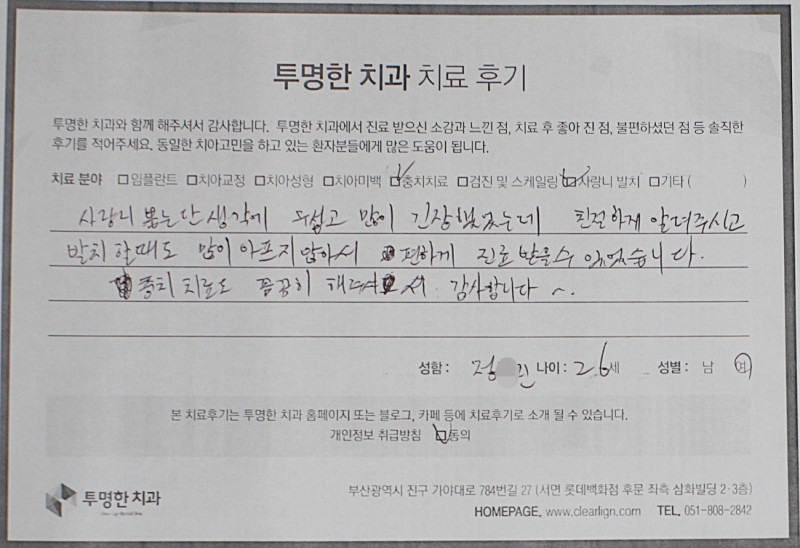 투명한 치과 치료 후기
투명한 치과와 함께 해주셔서 감사합니다. 투명한 치과에서 진료 받으신 소감과 느낀 점, 치료 후 좋아 진 점, 불편하셨던 점 등 솔직한
후기를 적어주세요. 동일한 치아고민을 하고 있는 환자분들에게 많은 도움이 됩니다.
치료 분야 □임플란트 □치아교정 □치아성형 □치아미백 ☑충치치료 □검진 및 스케일링 ☑사랑니 발치 □기타 ( )
사랑니 뽑는단 생각에 무섭고 많이 긴장했었는데 친절하게 알려주시고
발치 할때도 많이 아프지 않아서 편하게 진료 받을수 있었습니다.
충치 치료도 꼼꼼히 해주셔서 감사합니다 ~.
성함 : 정 진 나이 : 26세 성별 : 남 여
본 치료후기는 투명한 치과 홈페이지 또는 블로그, 카페 등에 치료후기로 소개 될 수 있습니다.
개인정보 취급방침 ☑동의
투명한 치과
부산광역시 진구 가야대로 784번길 27 (서면 롯데백화점 후문 좌측 삼화빌딩 2·3층)
HOMEPAGE. www.clearlign.com TEL. 051-808-2842